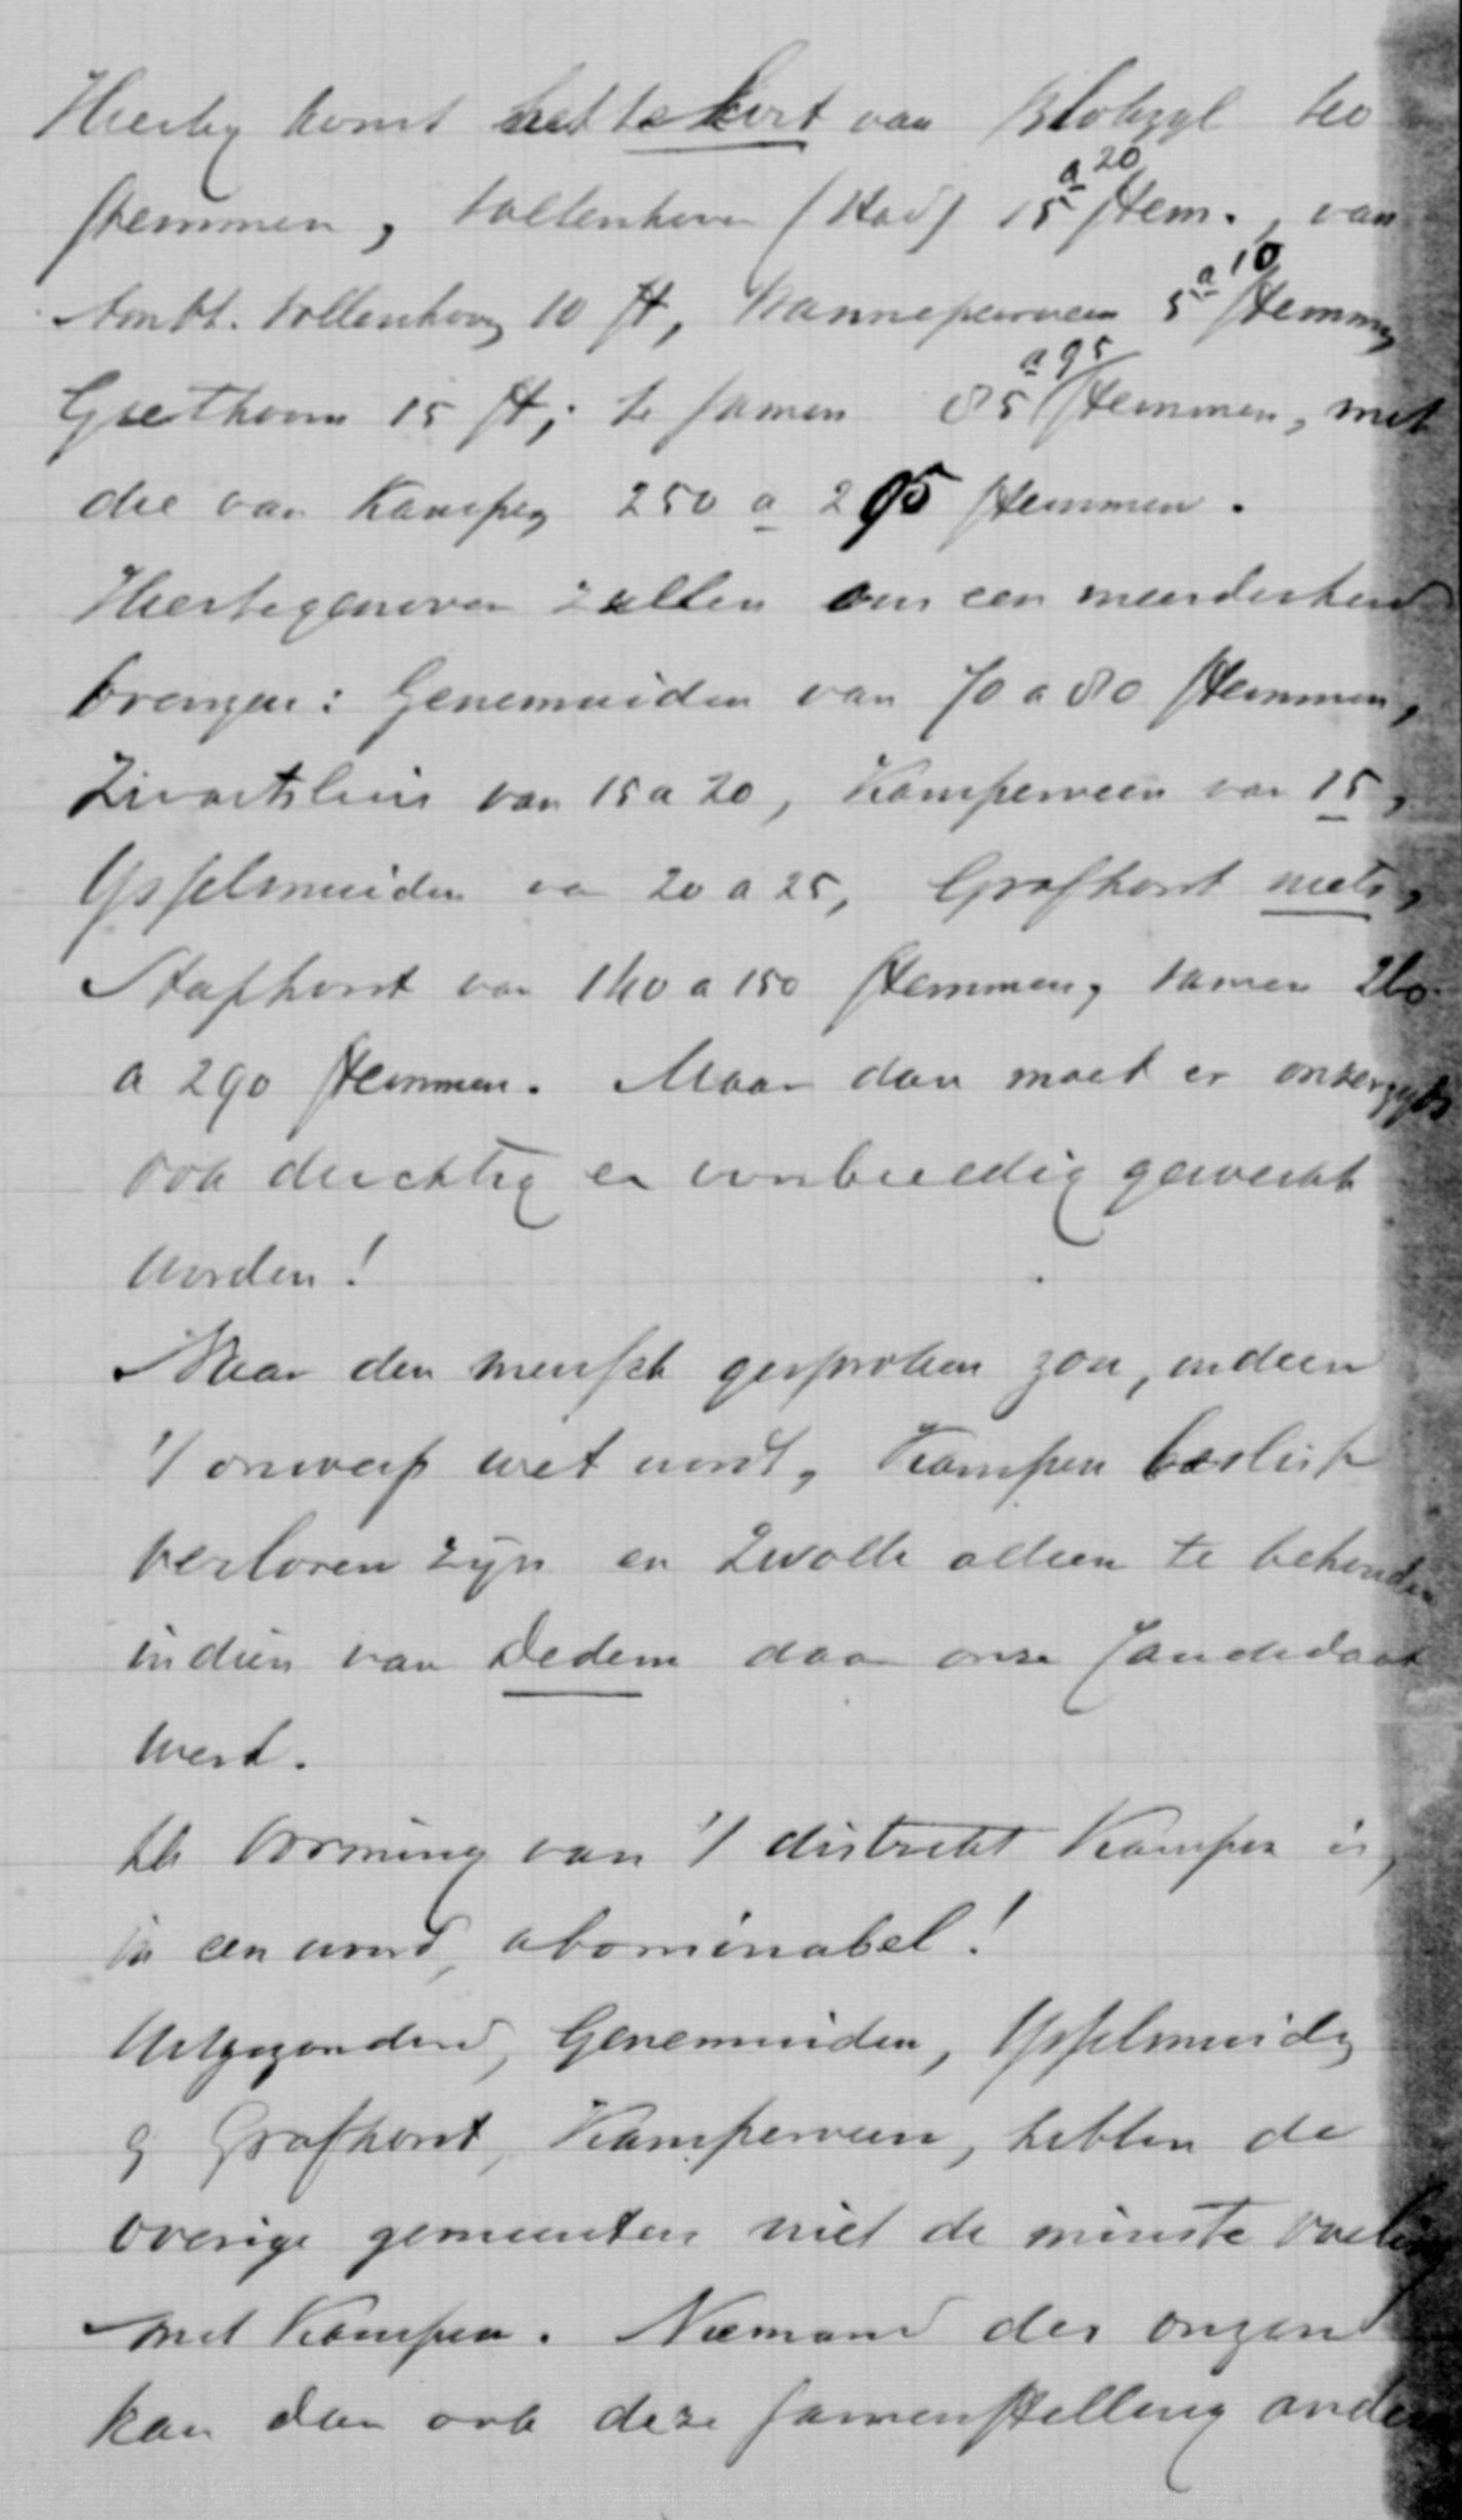 Hierbij komt het te kort van Blokzyl 40
stemmen, Vollenhove (Stad) 15 a 20 stem., van
Ambt. Vollenhove 10 st, Wanneperveen 5 a 10 stemmen
Giethoorn 15 st; te samen 85 a 95 stemmen, met
die van Kampen 250 a 295 stemmen.
Hiertegenover zullen ons een meerderheid
brengen: Genemuiden van 70 a 80 stemmen,
Zwartsluis van 15 a 20, Kamperveen van 15,
Ysselmuiden van 20 a 25, Grafhorst niets,
Staphorst van 140 a 150 stemmen, samen 260
a 290 stemmen. Maar dan moet er onzerzyds
ook duchtig en eenbreedig gewerkt
worden!
Naar den mensch gesproken zou, indien
't ontwerp wet wordt, Kampen beslist
verloren zijn en Zwolle alleen te behouden
indien van Dedem daar onze Candidaat
werd.
De vorming van 't distrikt Kampen is,
in een woord, abominabel!
Uitgezonderd, Genemuiden, Ysselmuiden
en Grafhorst, Kamperveen, hebben de
overige gemeenten niet de minste voeling
met Kampen. Niemand der onzen
kan dan ook deze samenstelling